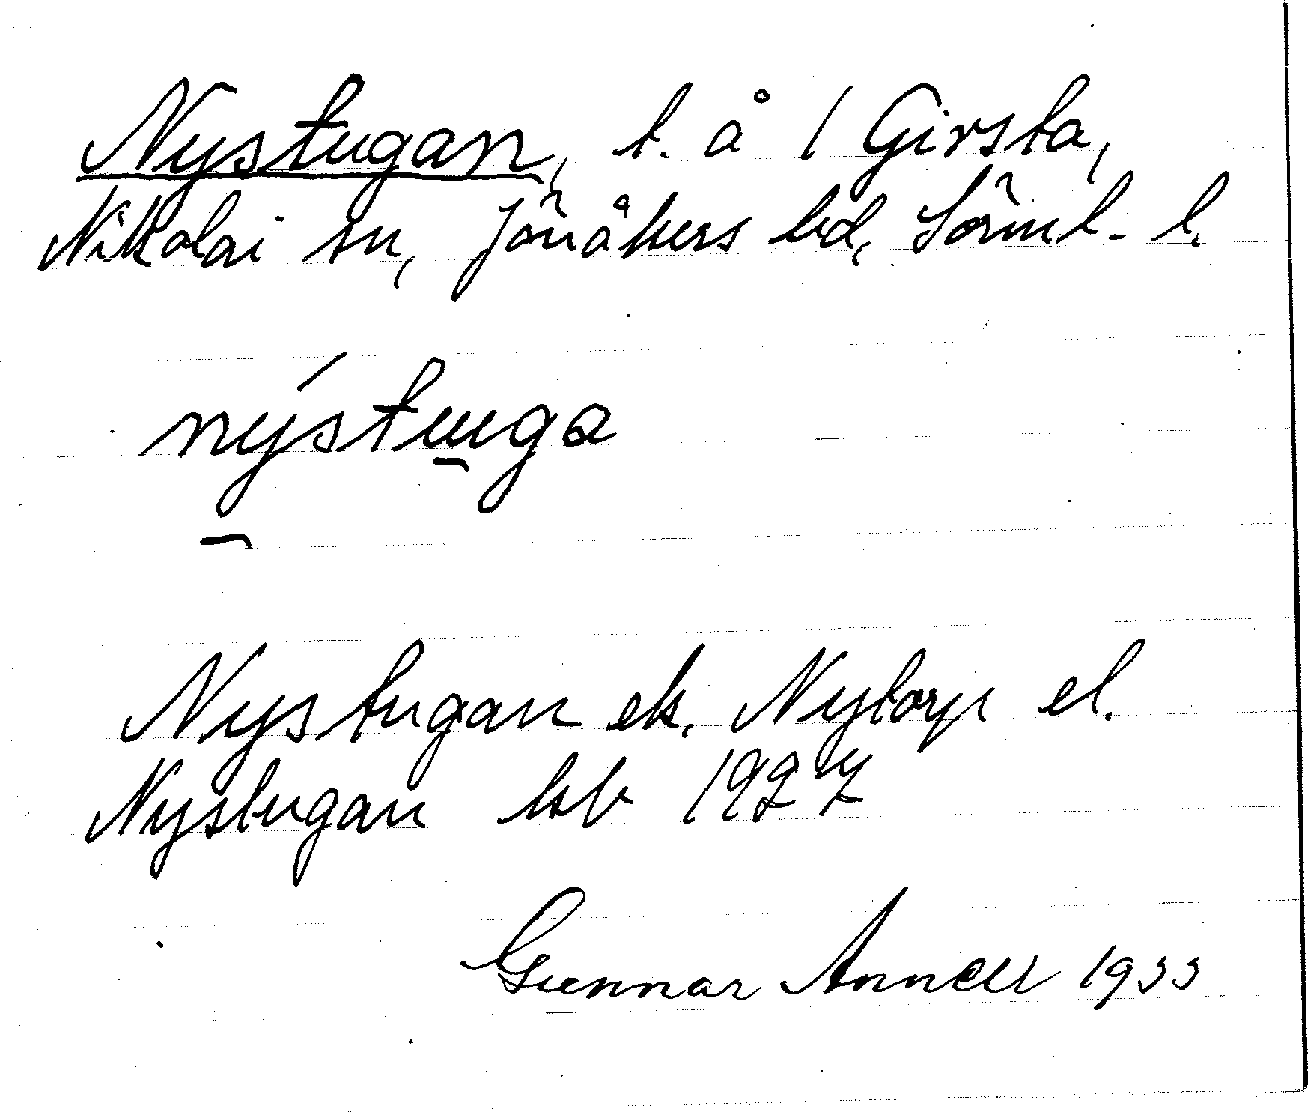 Nystugan, t. å 1 Girsta,
Nikolai sn, Jönåkers hd, Sörml. l.
nýstuga
Nystugan ek. Nytorp el.
Nystugan jsb 1927
Gunnar Annell 1933